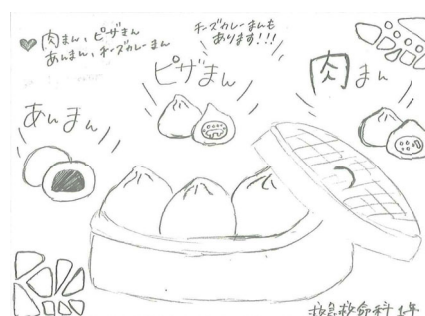 ♥ 肉まん、ピザまん
あんまん、チーズカレーまん
チーズカレーまんも
あります!!!
ピザまん
肉まん
あんまん
救急救命科 1年